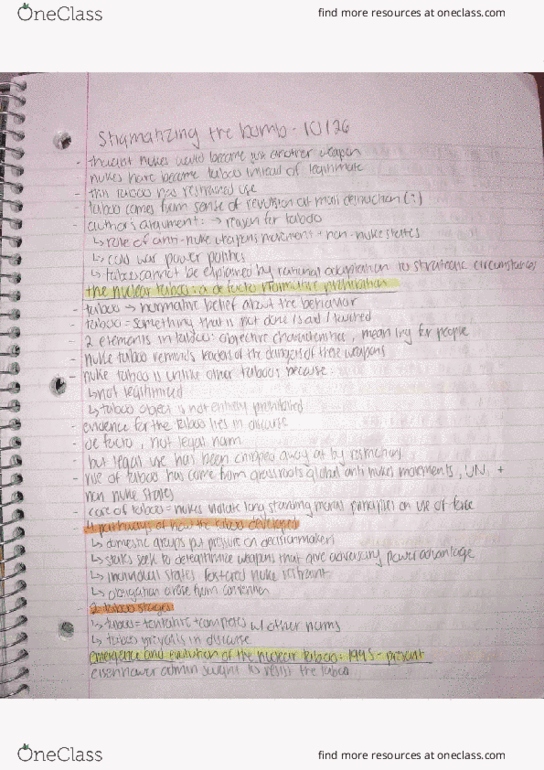 OneClass find more resources at oneclass.com
Stigmatizing the bomb - 10/26
- thought nukes would become just another weapon
nukes have become taboo instead of legitimate
- this taboo has restrained use
- taboo comes from sense of revulsion at mass destruction (?)
- authors argument: → reason for taboo
↳ role of anti-nuke weapons movement + non-nuke states
↳ cold war power politics
↳ taboo cannot be explained by rational adaptation to strategic circumstances
the nuclear taboo: a de facto normative prohibition
- taboo → normative belief about the behavior
- taboo = something that is not done / said / touched
- 2 elements in taboo: objective characteristics, meaning for people
- nuke taboo reminds leaders of the dangers of these weapons
- nuke taboo is unlike other taboos because:
↳ not legitimized
↳ taboo object is not entirely prohibited
- evidence for the taboo lies in discourse
- de facto, not legal norm
- but legal use has been chipped away at by
- rise of taboo has come from grassroots global anti nukes movements, UN, +
non nuke states
- core of taboo = nukes violate long standing moral principles on use of force
4 pathways of how the taboo developed
↳ domestic groups put pressure on decisionmakers
↳ states seek to delegitimize weapons that give adversary power advantage
↳ individual states fostered nuke restraint
↳ obligation arose from convention
- 2 taboo stages
↳ taboo = tentative + competes w/ other norms
↳ taboo in discourse
emergence and evolution of the nuclear taboo: 1945 - present
eisenhower admin sought to resist the taboo
OneClass find more resources at oneclass.com